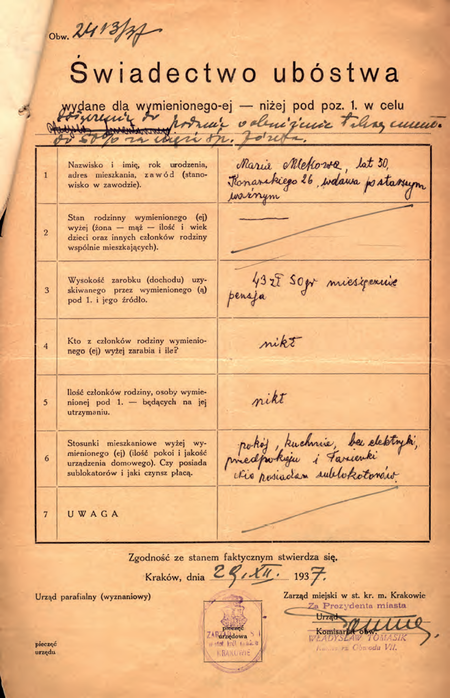 Obw. 2413/37
Świadectwo ubóstwa
wydane dla wymienionego-ej — niżej pod poz. 1. w celu
do
do 50% za męża śp. Józefa.
1 Nazwisko i imię, rok urodzenia, adres mieszkania, zawód (stanowisko w zawodzie).
Maria Mlekowa, lat 30,
Konarskiego 26, wdowa po starszym
woźnym
2 Stan rodzinny wymienionego (ej) wyżej (żona — mąż — ilość i wiek dzieci oraz innych członków rodziny wspólnie mieszkających).
3 Wysokość zarobku (dochodu) uzyskiwanego przez wymienionego (ą) pod 1. i jego źródło.
43 zł 50 gr miesięcznie
pensja
4 Kto z członków rodziny wymienionego (ej) wyżej zarabia i ile?
nikt
5 Ilość członków rodziny, osoby wymienionej pod 1. — będących na jej utrzymaniu.
nikt
6 Stosunki mieszkaniowe wyżej wymienionego (ej) (ilość pokoi i jakość urządzenia domowego). Czy posiada sublokatorów i jaki czynsz płacą.
pokój, kuchnia, bez elektryki,
przedpokoju i łazienki
Nie posiadam sublokatorów.
7 UWAGA
Zgodność ze stanem faktycznym stwierdza się.
Kraków, dnia 29. XII. 1937.
Urząd parafialny (wyznaniowy)
Zarząd miejski w st. kr. m. Krakowie
Za Prezydenta miasta
Urząd
Komisariat obw.
WŁADYSŁAW TOMASIK
Obwodu VII.
pieczęć
urzędowa
KRAKOWIE
pieczęć
urzędu